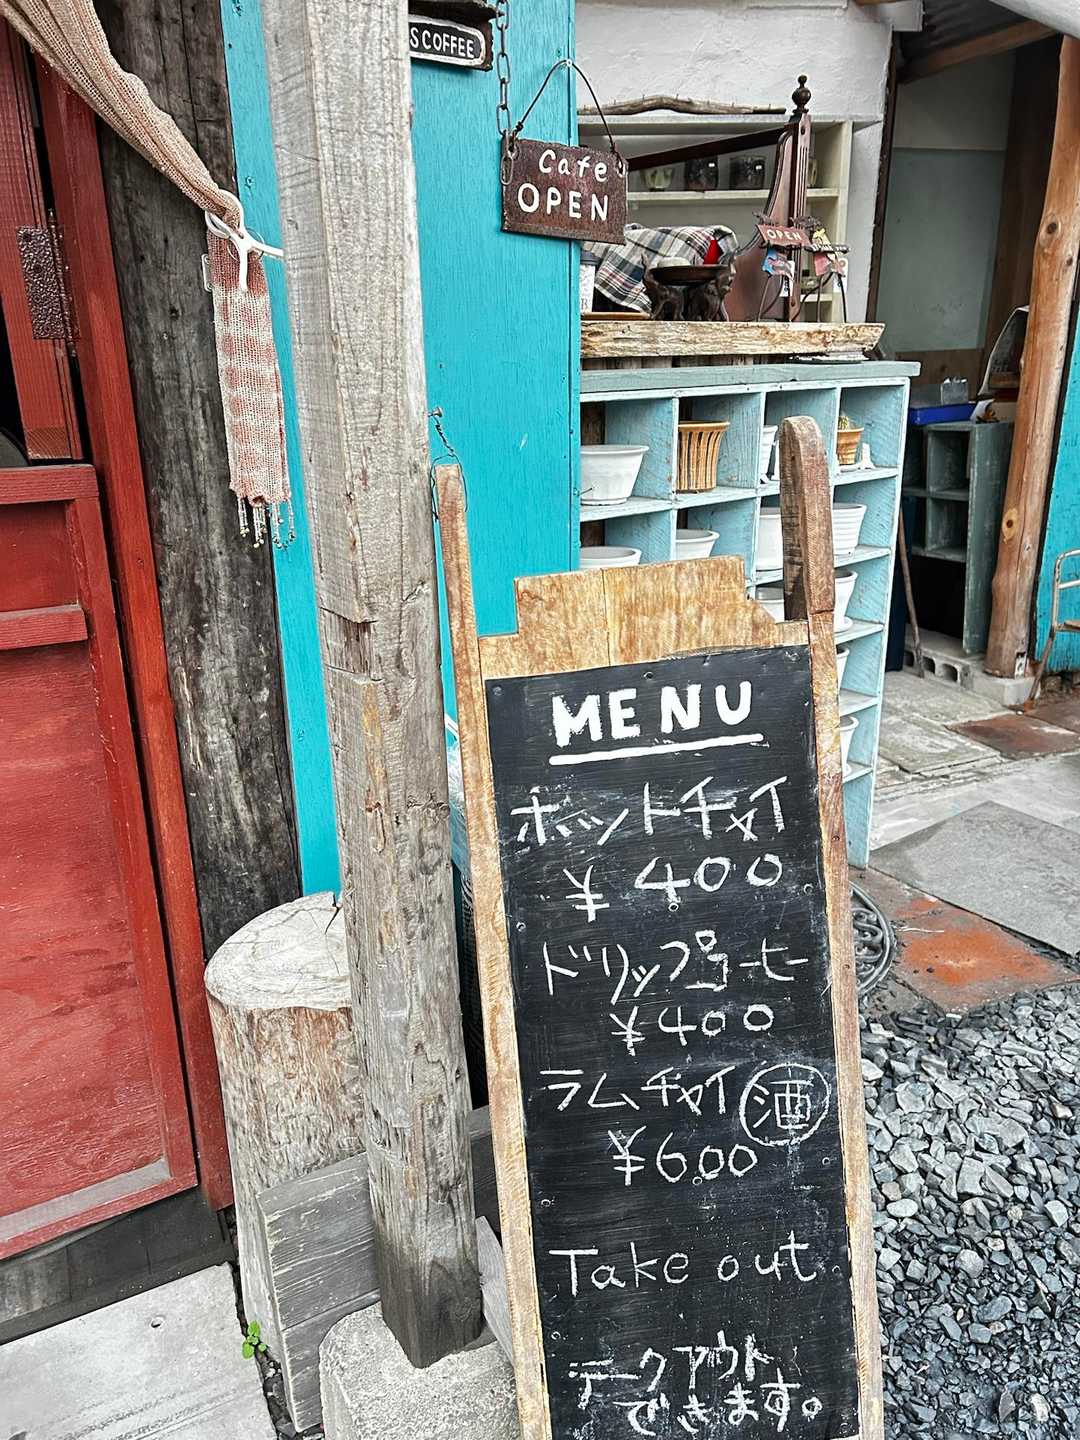 S COFFEE
Cafe
OPEN
OPEN
MENU
ホットチャイ
¥400
ドリップコーヒー
¥400
ラムチャイ 酒
¥600
Take out
テークアウト
できます。